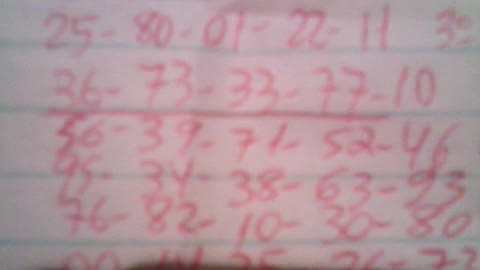 25-80-01-22-11
36-73-33-77-10
56-39-71-52-46
95-34-38-63-93
76-82-10-30-80